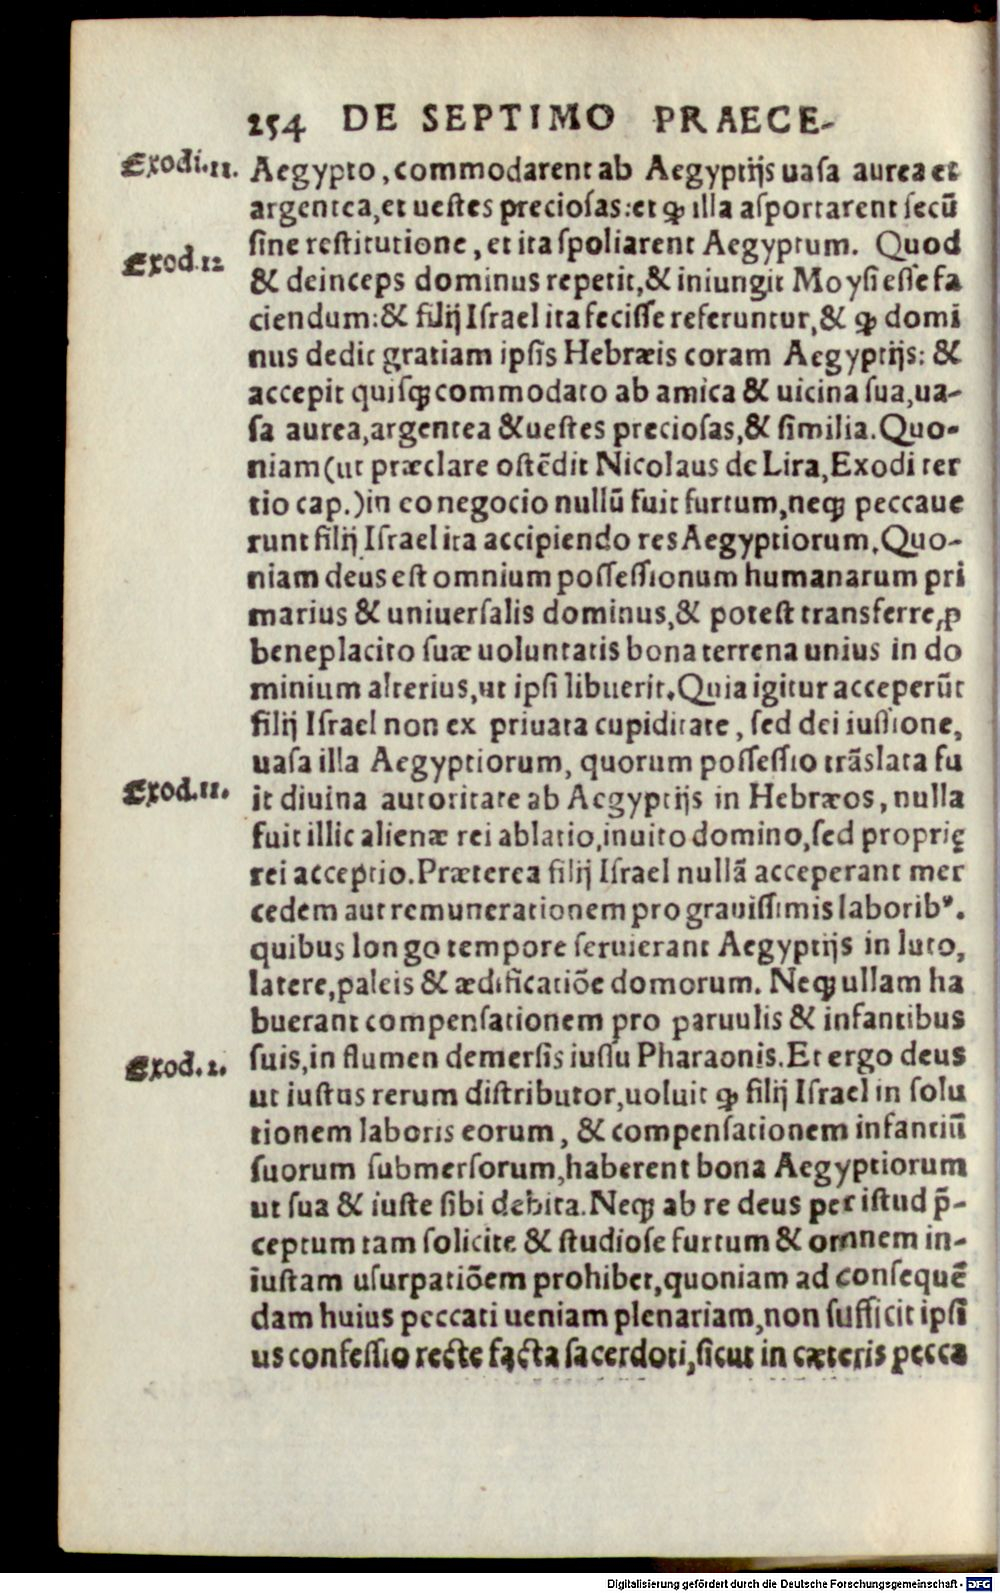 254 DE SEPTIMO PRAECE-
Exodi.11. Aegypto, commodarent ab Aegyptijs uasa aurea et
argentea, et uestes preciosas: et ꝙ illa asportarent secũ
sine restitutione, et ita spoliarent Aegyptum. Quod
Exod.12 & deinceps dominus repetit, & iniungit Moysi esse fa
ciendum: & filij Israel ita fecisse referuntur, & ꝙ domi
nus dedit gratiam ipsis Hebræis coram Aegyptijs: &
accepit quisꝗ commodato ab amica & uicina sua, ua-
sa aurea, argentea & uestes preciosas, & similia. Quo-
niam (ut præclare ostẽdit Nicolaus de Lira, Exodi ter
tio cap.) in eo negocio nullũ fuit furtum, neꝗ peccaue
runt filij Israel ita accipiendo res Aegyptiorum. Quo-
niam deus est omnium possessionum humanarum pri
marius & uniuersalis dominus, & potest transferre, ꝓ
beneplacito suæ uoluntatis bona terrena unius in do
minium alterius, ut ipsi libuerit. Quia igitur acceperũt
filij Israel non ex priuata cupiditate, sed dei iussione,
uasa illa Aegyptiorum, quorum possessio trãslata fu
Exod.11. it diuina autoritate ab Aegyptijs in Hebræos, nulla
fuit illic alienæ rei ablatio, inuito domino, sed proprię
rei acceptio. Præterea filij Israel nullã acceperant mer
cedem aut remunerationem pro grauissimis laboribꝰ.
quibus longo tempore seruierant Aegyptijs in luto,
latere, paleis & ædificatiõe domorum. Neꝗ ullam ha
buerant compensationem pro paruulis & infantibus
Exod.1. suis, in flumen demersis iussu Pharaonis. Et ergo deus
ut iustus rerum distributor, uoluit ꝙ filij Israel in solu
tionem laboris eorum, & compensationem infantiũ
suorum submersorum, haberent bona Aegyptiorum
ut sua & iuste sibi debita. Neꝗ ab re deus per istud p̃-
ceptum tam solicite & studiose furtum & omnem in-
iustam usurpatiõem prohibet, quoniam ad consequẽ
dam huius peccati ueniam plenariam, non sufficit ipsi
us confessio recte fącta sacerdoti, sicut in cæteris pecca
Digitalisierung gefördert durch die Deutsche Forschungsgemeinschaft - DFG